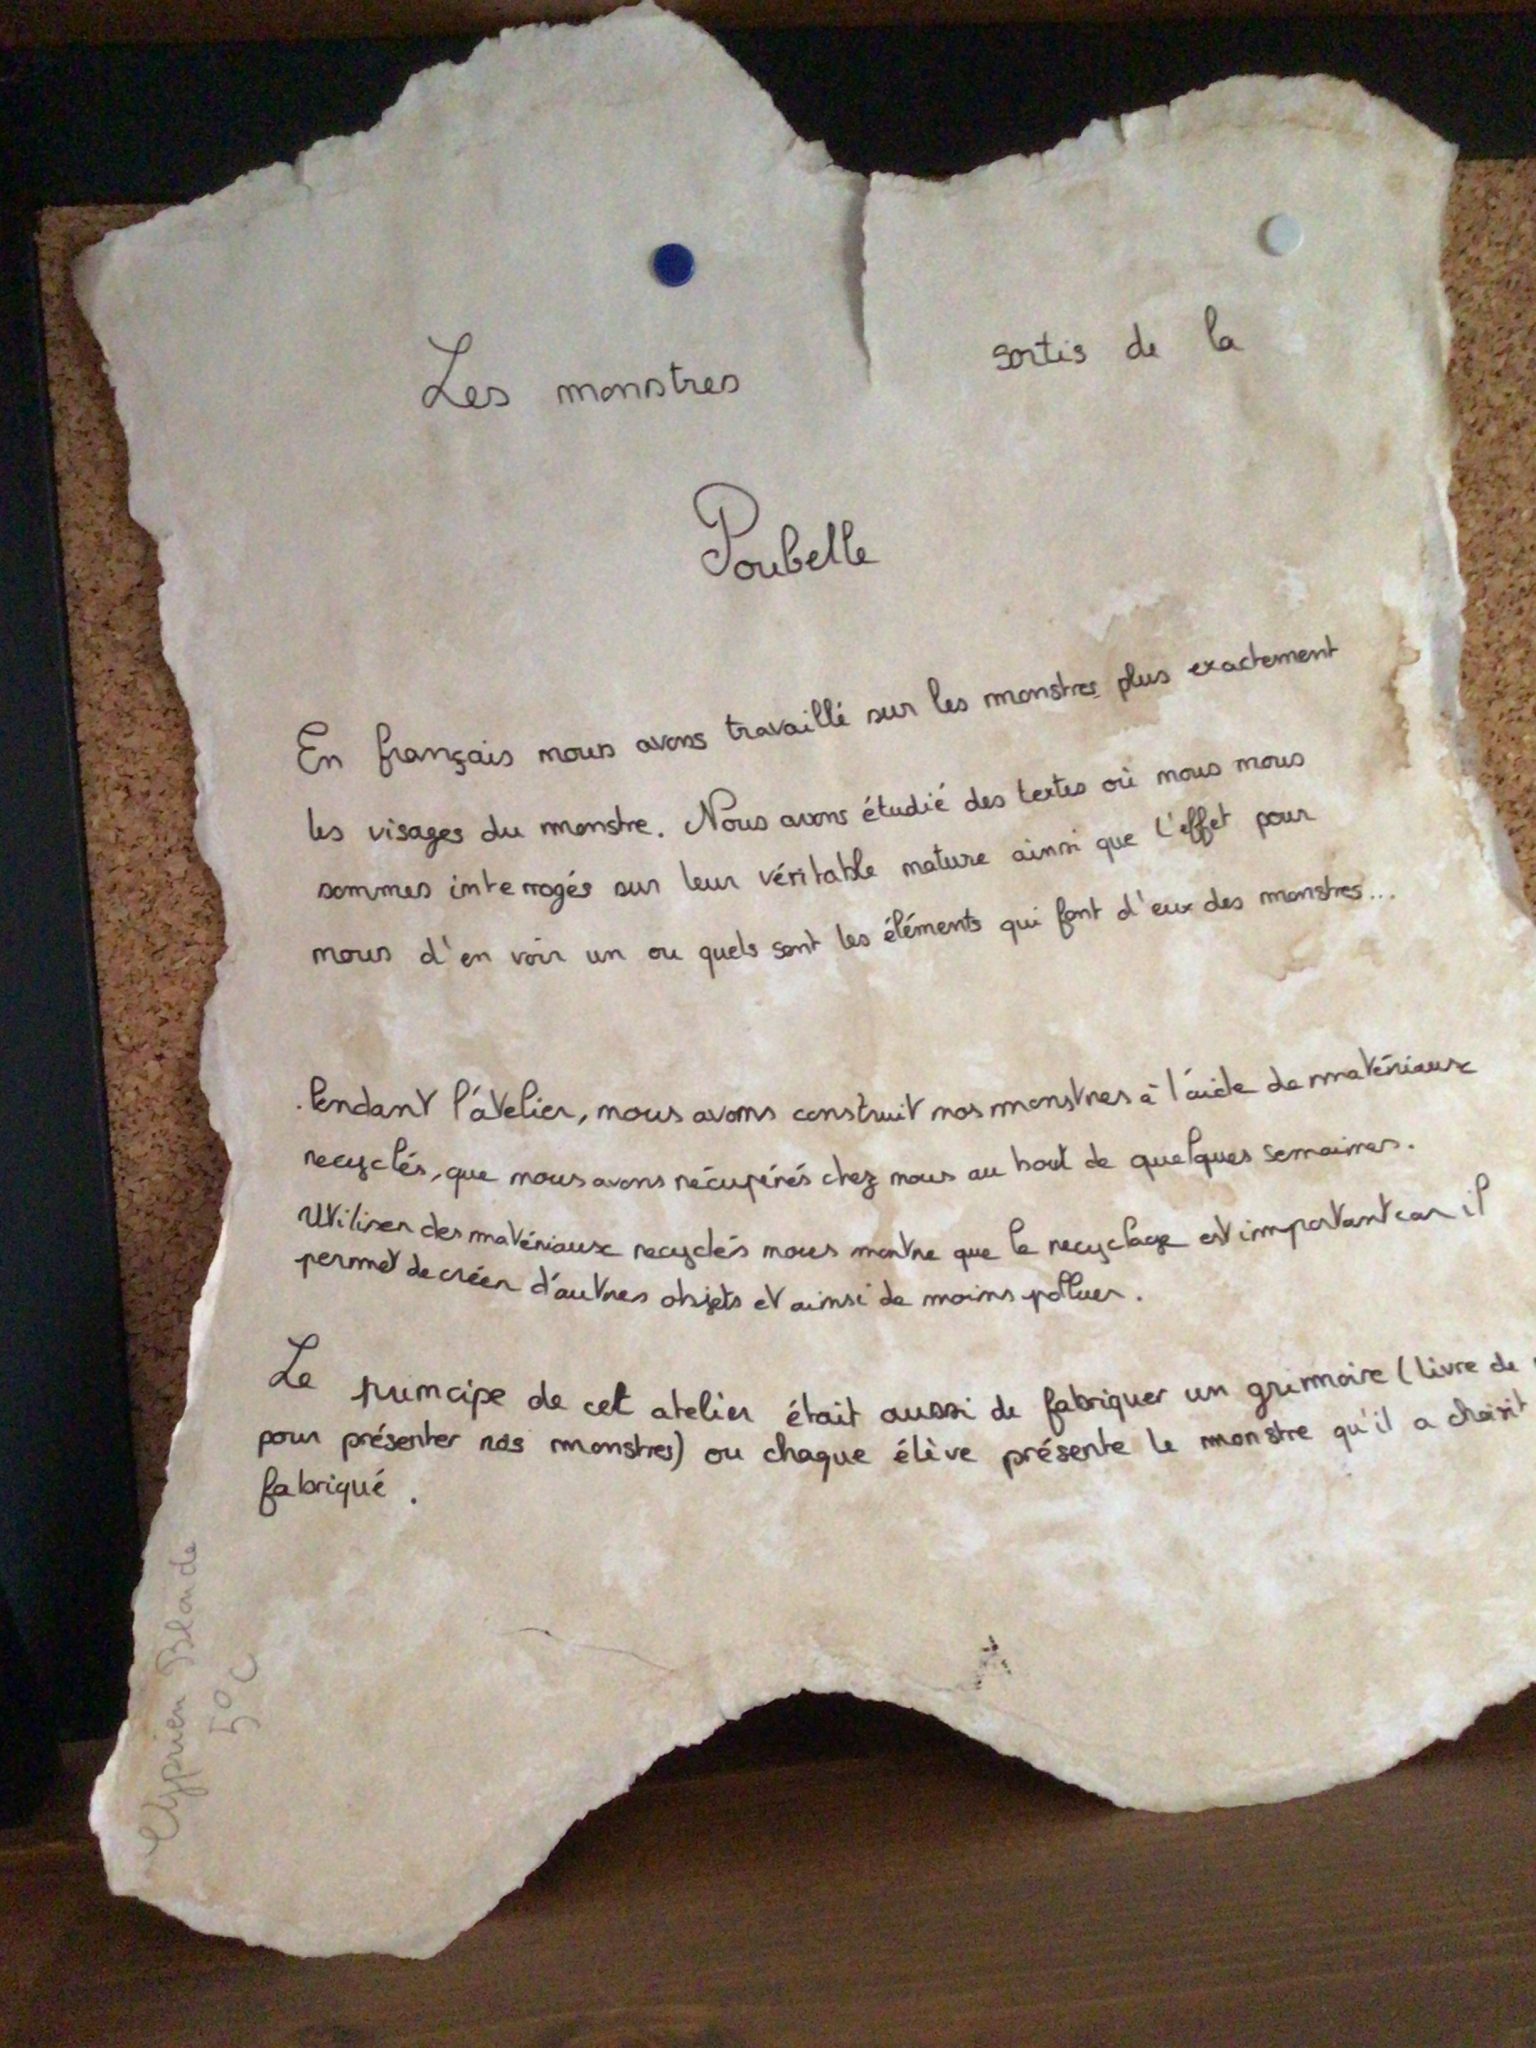 Les monstres sortis de la
Poubelle
En français nous avons travaillé sur les monstres plus exactement
les visages du monstre. Nous avons étudié des textes où nous nous
sommes interrogés sur leur véritable nature ainsi que l'effet pour
nous d'en voir un ou quels sont les éléments qui font d'eux des monstres...
Pendant l'atelier, nous avons construit nos monstres à l'aide de matériaux
recyclés, que nous avons récupérés chez nous au bout de quelques semaines.
Utiliser des matériaux recyclés nous montre que le recyclage est important car il
permet de créer d'autres objets et ainsi de moins polluer.
Le principe de cet atelier était aussi de fabriquer un grimoire (livre de
pour présenter nos monstres) ou chaque élève présente le monstre qu'il a choisit
fabriqué.
Cyprien Blande
5°C